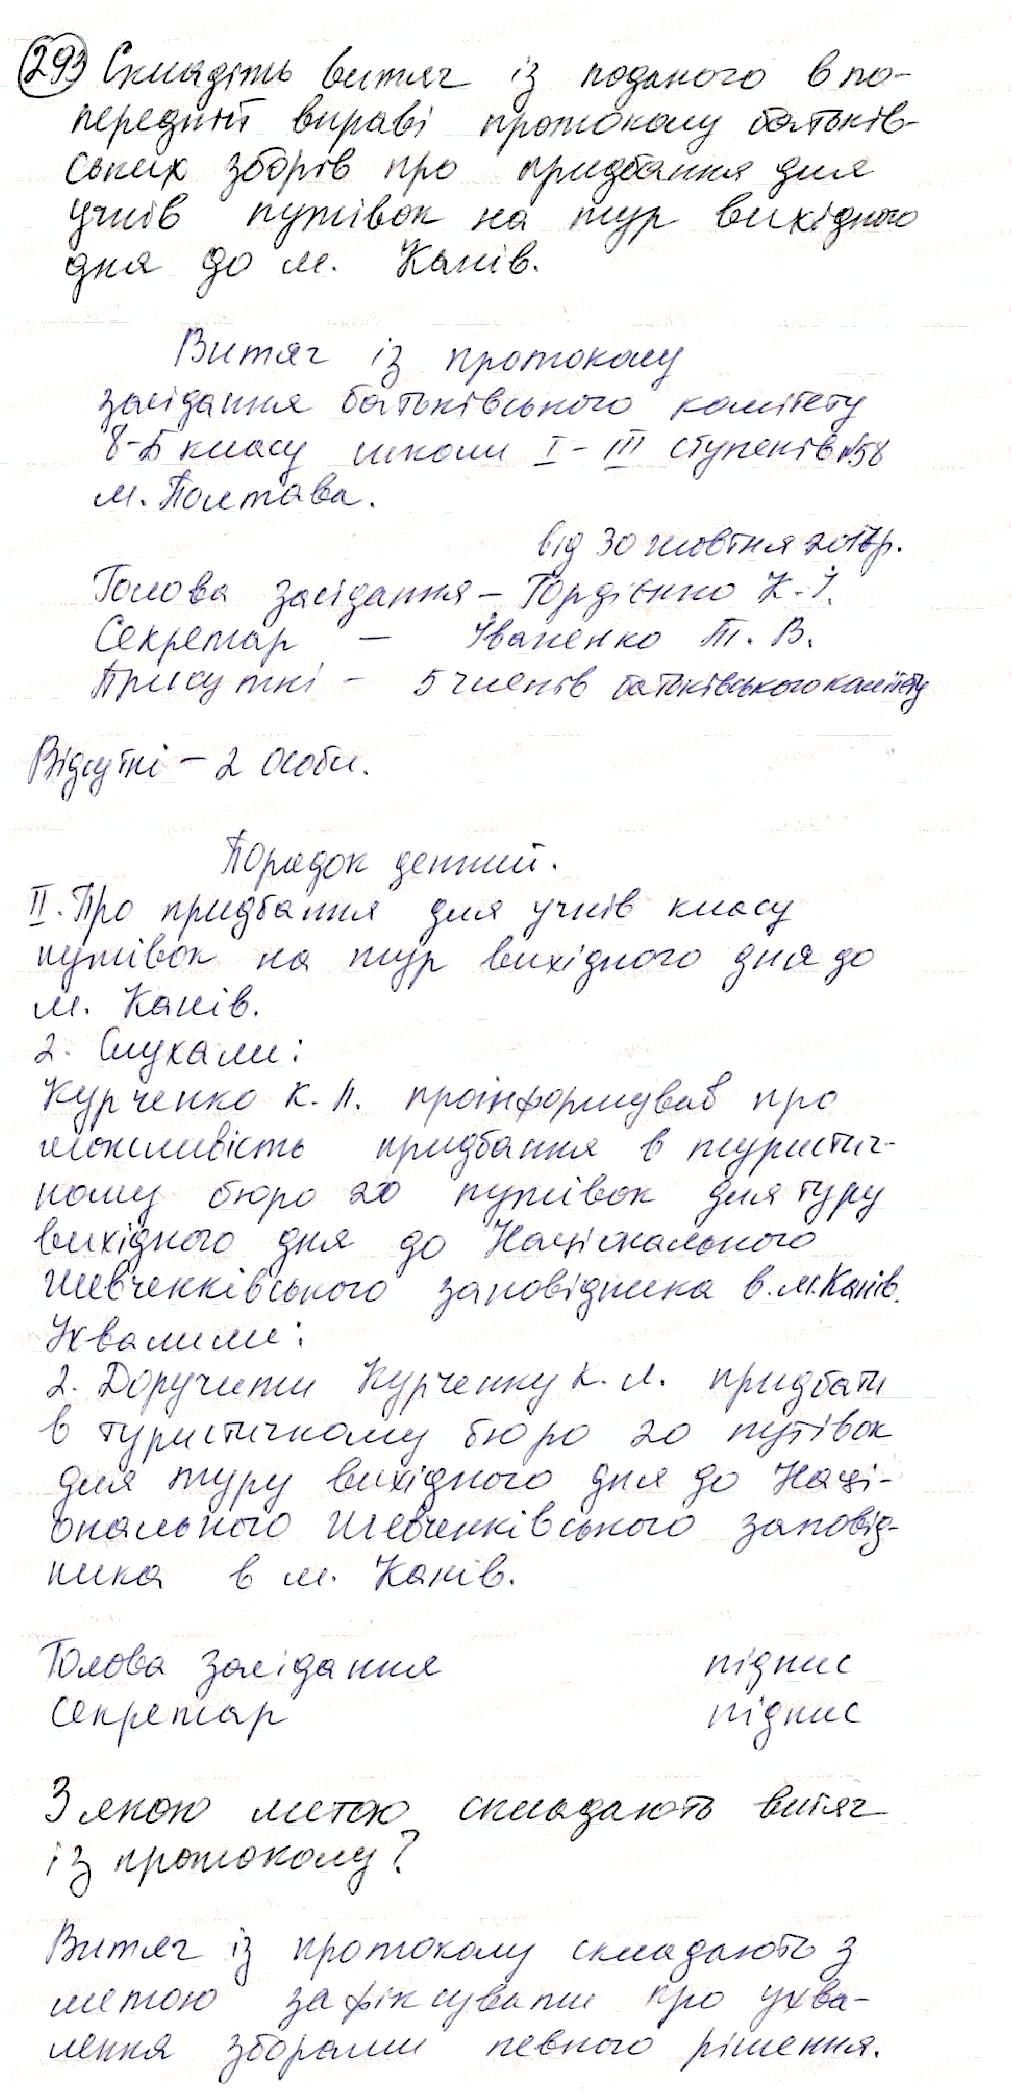 293 Складіть витяг із поданого в по-
передній вправі протоколу батьків-
ських зборів про придбання для
учнів путівок на тур вихідного
дня до м. Канів.
Витяг із протоколу
засідання батьківського комітету
8-Б класу школи І-ІІІ ступенів №58
м. Полтава.
від 30 жовтня 2017р.
Голова засідання – Гордієнко К.І.
Секретар – Іваненко Т. В.
Присутні – 5 членів батьківського комітету
Відсутні – 2 особи.
Порядок денний.
ІІ. Про придбання для учнів класу
путівок на тур вихідного дня до
м. Канів.
2. Слухали:
Курченко К. Л. проінформував про
можливість придбання в туристич-
ному бюро 20 путівок для туру
вихідного дня до Національного
Шевченківського заповідника в.м.Канів.
Ухвалили:
2. Доручити Курченку К. Л. придбати
в туристичному бюро 20 путівок
для туру вихідного дня до Наці-
онального Шевченківського заповід-
ника в м. Канів.
Голова засідання підпис
Секретар підпис
З якою метою складають витяг
із протоколу?
Витяг із протоколу складають з
метою зафіксувати про ухва-
лення зборами певного рішення.